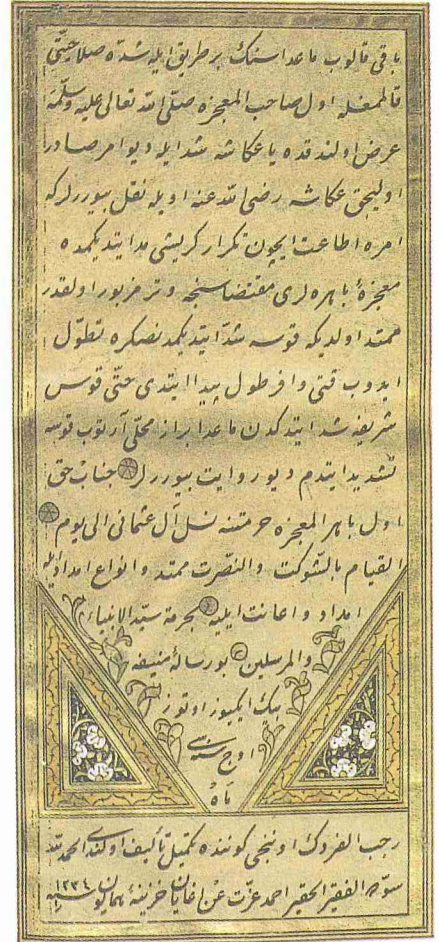 باقی قالوب ماعداسنك بر طریق ایله شده صلاحیتی
قالمغله اول صاحب المعجزه صلی الله تعالی علیه وسلمه
عرض اولندقده یا عکاشه شد ایله دیو امر صادر
اولیجق عکاشه رضی الله عنه اویله نقل بیوررلركه
امره اطاعت ایچون تکرار کریشی مد ایتدیكمده
معجزۀ باهره لری مقتضاسنجه وتر مزبور اولقدر
ممتد اولدیكه قوسه شد ایتدیكمدنصكره تطول
ایدوب قتی وافر طول پیدا ایتدی حتی قوس
شریفه شد ایتدكدن ماعدا براز محلی آرتوب قوسه
تشدید ایتدم دیو روایت بیوررلر جناب حق
اول باهر المعجزه حرمتنه نسل آل عثمانی الی یوم
القیام بالشوكت والنصرت ممتد وانواع امداد ایله
امداد واعانت ایلیه بحرمة سید الانبیاء
والمرسلین بو رسالۀ منیفه
بیك ایكیوز اوتوز
اوچ سنه سی
ماه
رجب الفردك اوننجی كوننده تكمیل تألیف اولندی الحمد لله
سوده الفقیر الحقیر احمد عزت عن اغایان خزینۀ همایون سنه ١٢٣٤